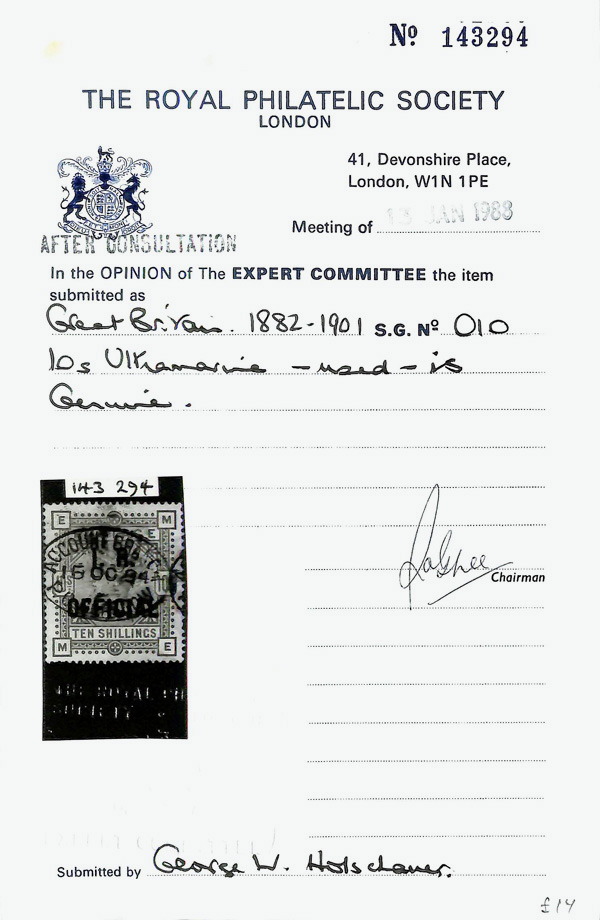 Nº 143294
THE ROYAL PHILATELIC SOCIETY
LONDON
41, Devonshire Place,
London, W1N 1PE
Meeting of 13 JAN 1988
AFTER CONSULTATION
In the OPINION of The EXPERT COMMITTEE the item
submitted as
Great Britain. 1882-1901 S.G. Nº O10
10s Ultramarine - used - is
Genuine.
143 294
E E M
ACCOUNT
I. R.
15 OC 84
OFFICIAL
TEN SHILLINGS
M E
Chairman
THE ROYAL PH
SOCIETY
Submitted by George W. Holschauer.
£14